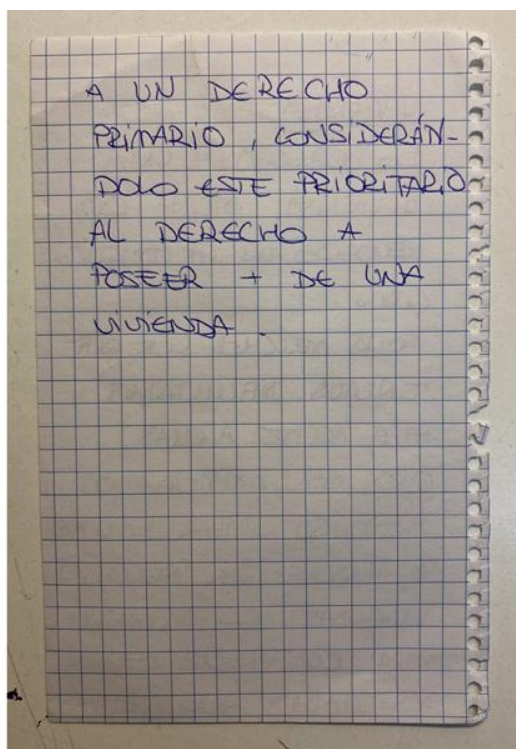 A UN DERECHO
PRIMARIO, CONSIDERÁN-
DOLO ESTE PRIORITARIO
AL DERECHO A
POSEER + DE UNA
VIVIENDA.